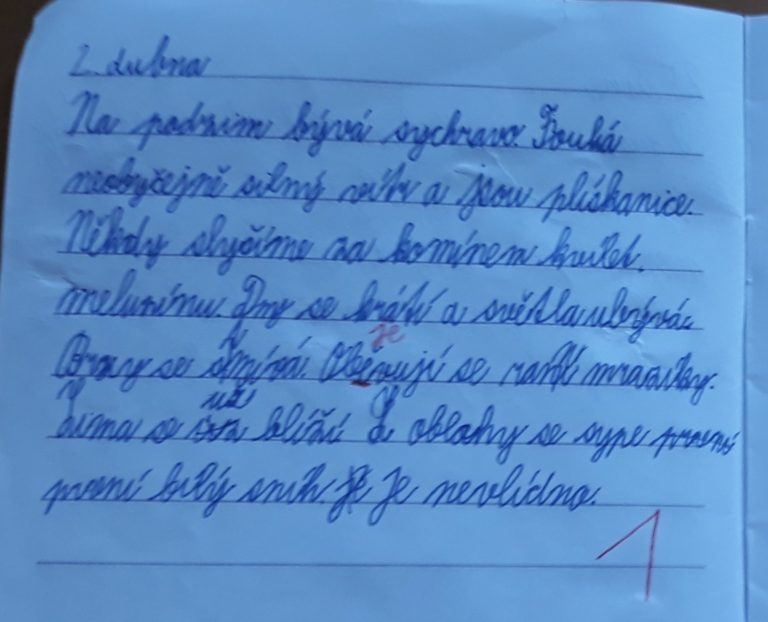 2. dubna
Na podzim bývá sychravo. Fouká
neobyčejně silný vítr a jsou plískanice.
Někdy slyčíme za komínem kvílet
meluzínu. Dny se krátí a světla ubývá.
je
Brzy se šmívá. Oběvují se ranní mrazíky.
už
Zima se blíží Z oblohy se sype první
první bílý sníh. Je nevlídno.
1